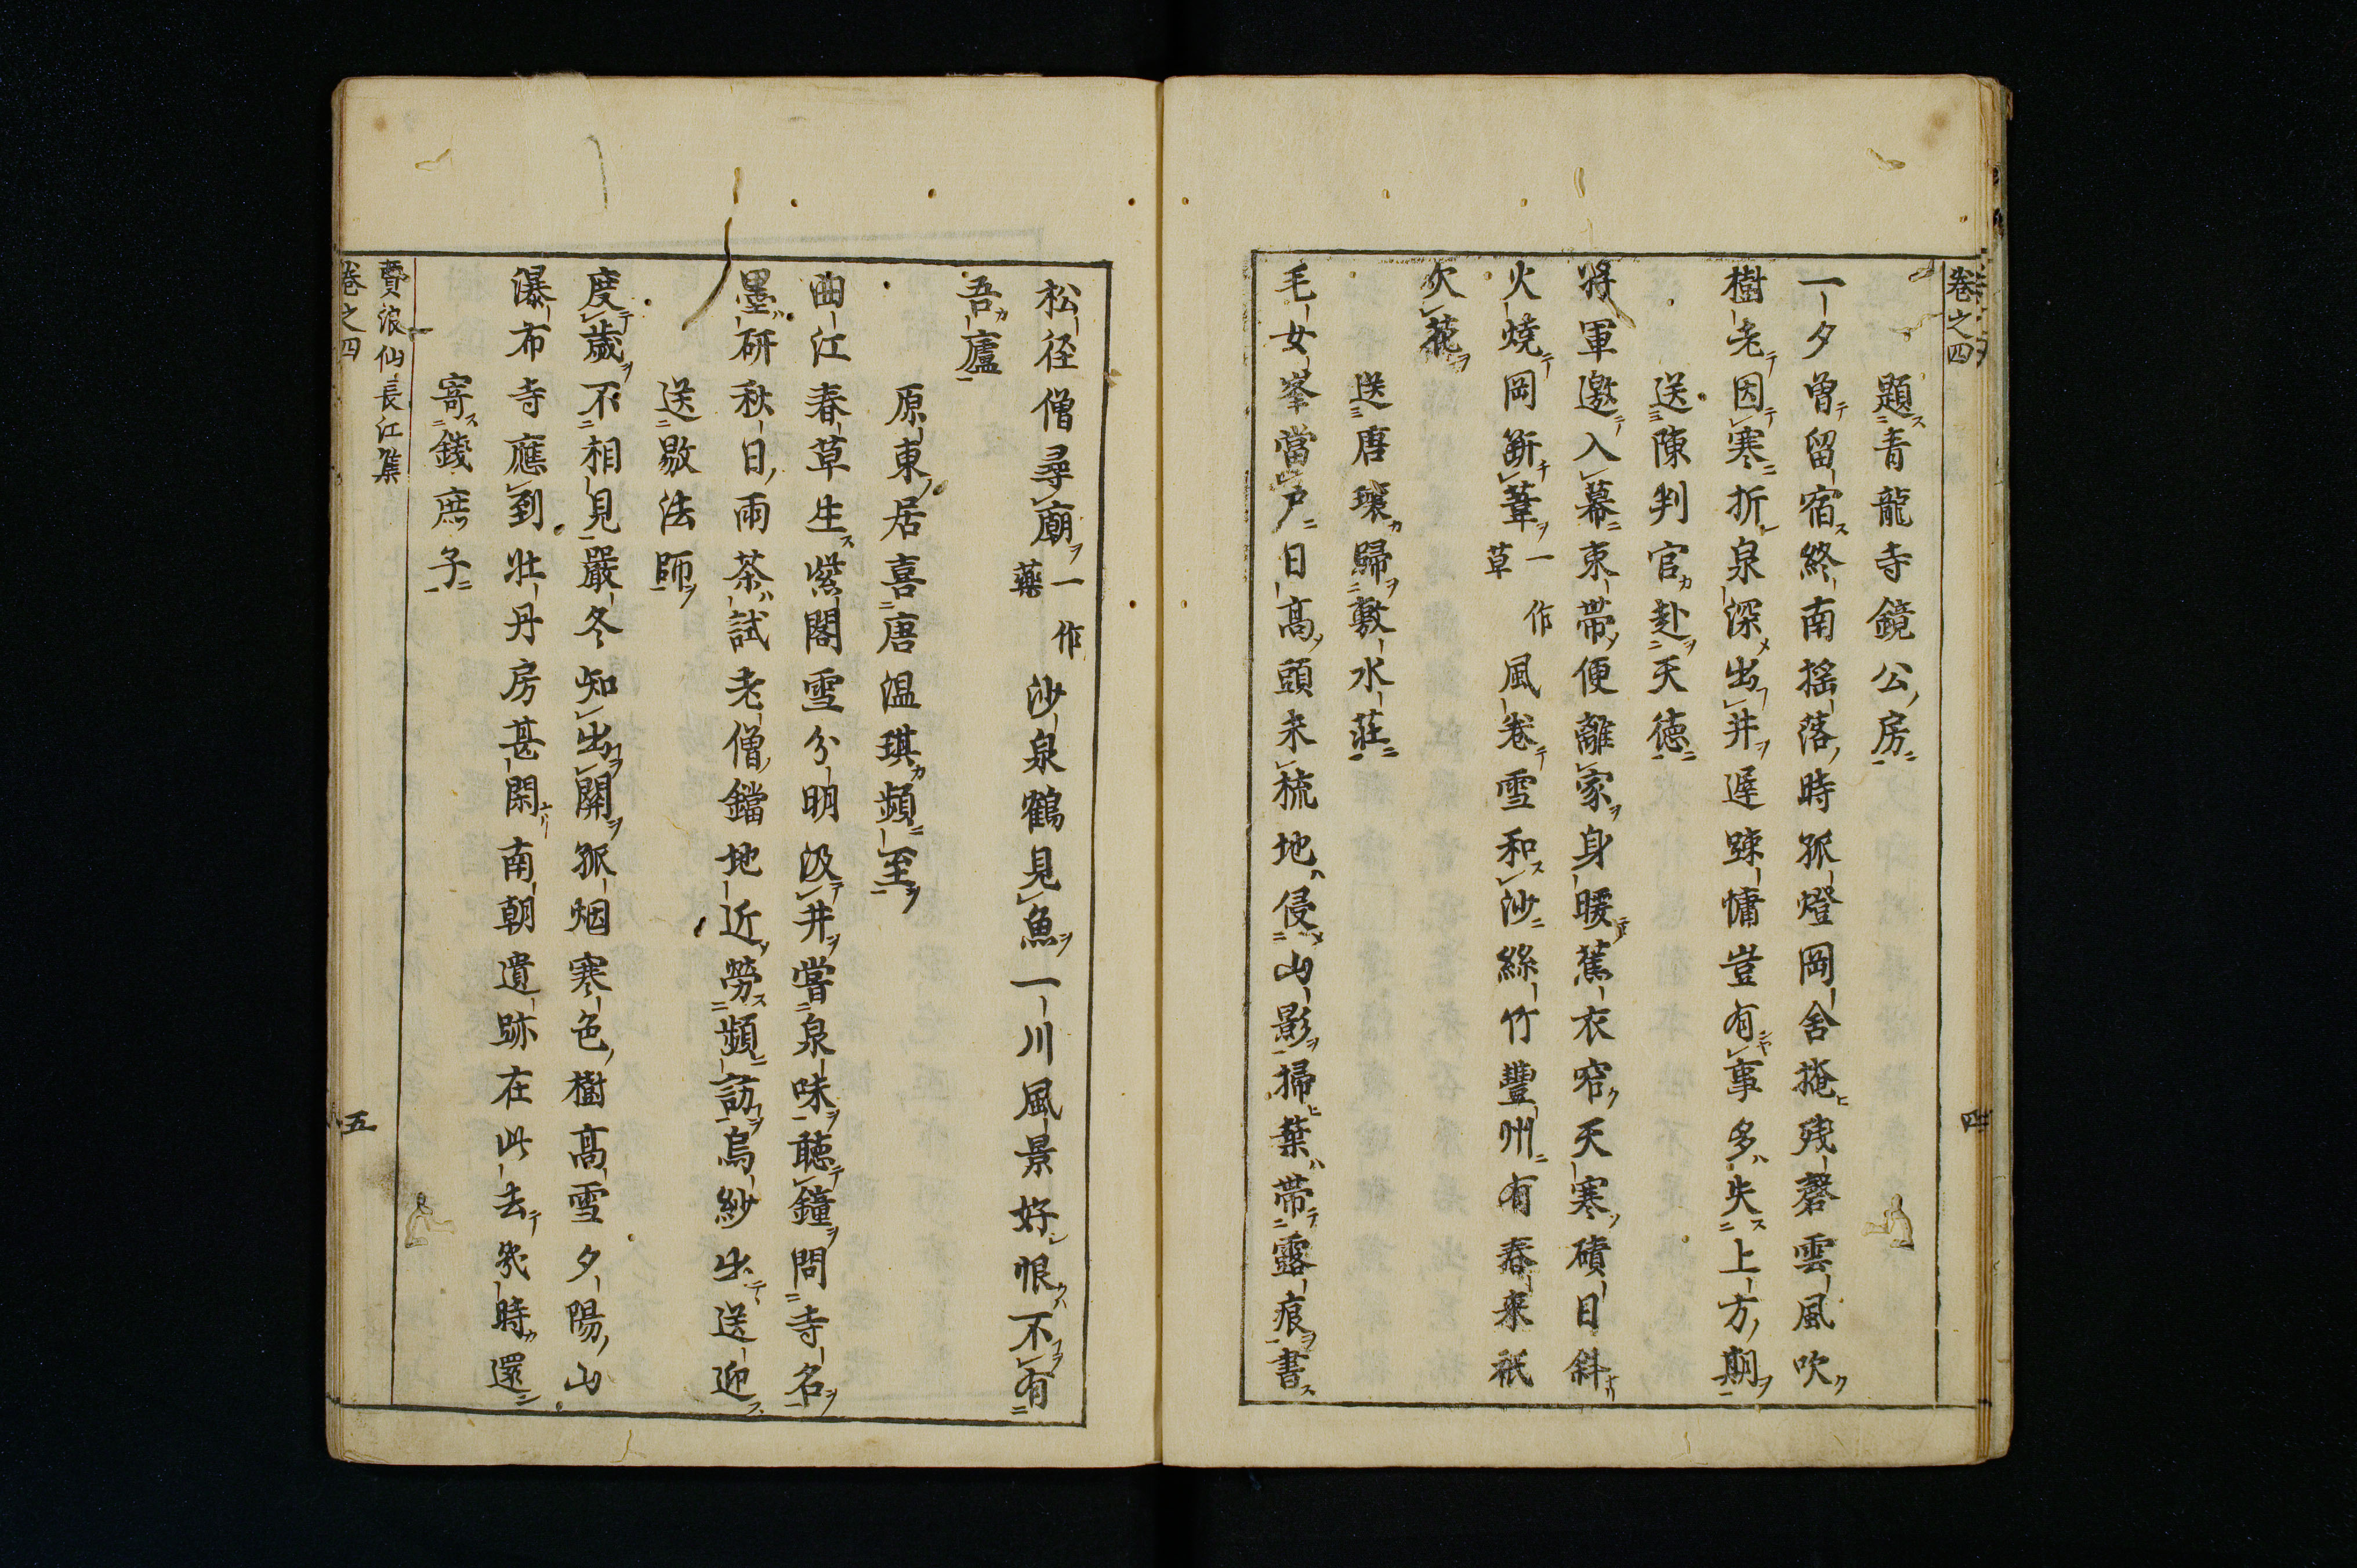 卷之四
四
題青龍寺鏡公房
一夕曽留宿終南揺落時孤燈岡舎掩残磬雲風吹
樹老因寒折泉深出井遅踈慵豈有事多失上方期
送陳判官赴天徳
将軍邀入幕束帯便離家身暖蕉衣窄天寒磧日斜
火燒岡斷葦一作草風卷雪和沙絲竹豐州有春来祇
欠花
送唐環歸敷水荘
毛女峯當戸日高頭未梳地侵山影掃葉帯露痕書
松径僧尋廟一作藥沙泉鶴見魚一川風景好恨不有
吾廬
原東居喜唐温琪頻至
曲江春草生紫閣雪分明汲井嘗泉味聴鐘問寺名
墨研秋日雨茶試老僧鐺地近勞頻訪烏紗出送迎
送敡法師
度歳不相見嚴冬知出關孤烟寒色樹高雪夕陽山
瀑布寺應到壮丹房甚閑南朝遺跡在此去幾時還
寄錢庶子
賈浪仙長江集
卷之四
五